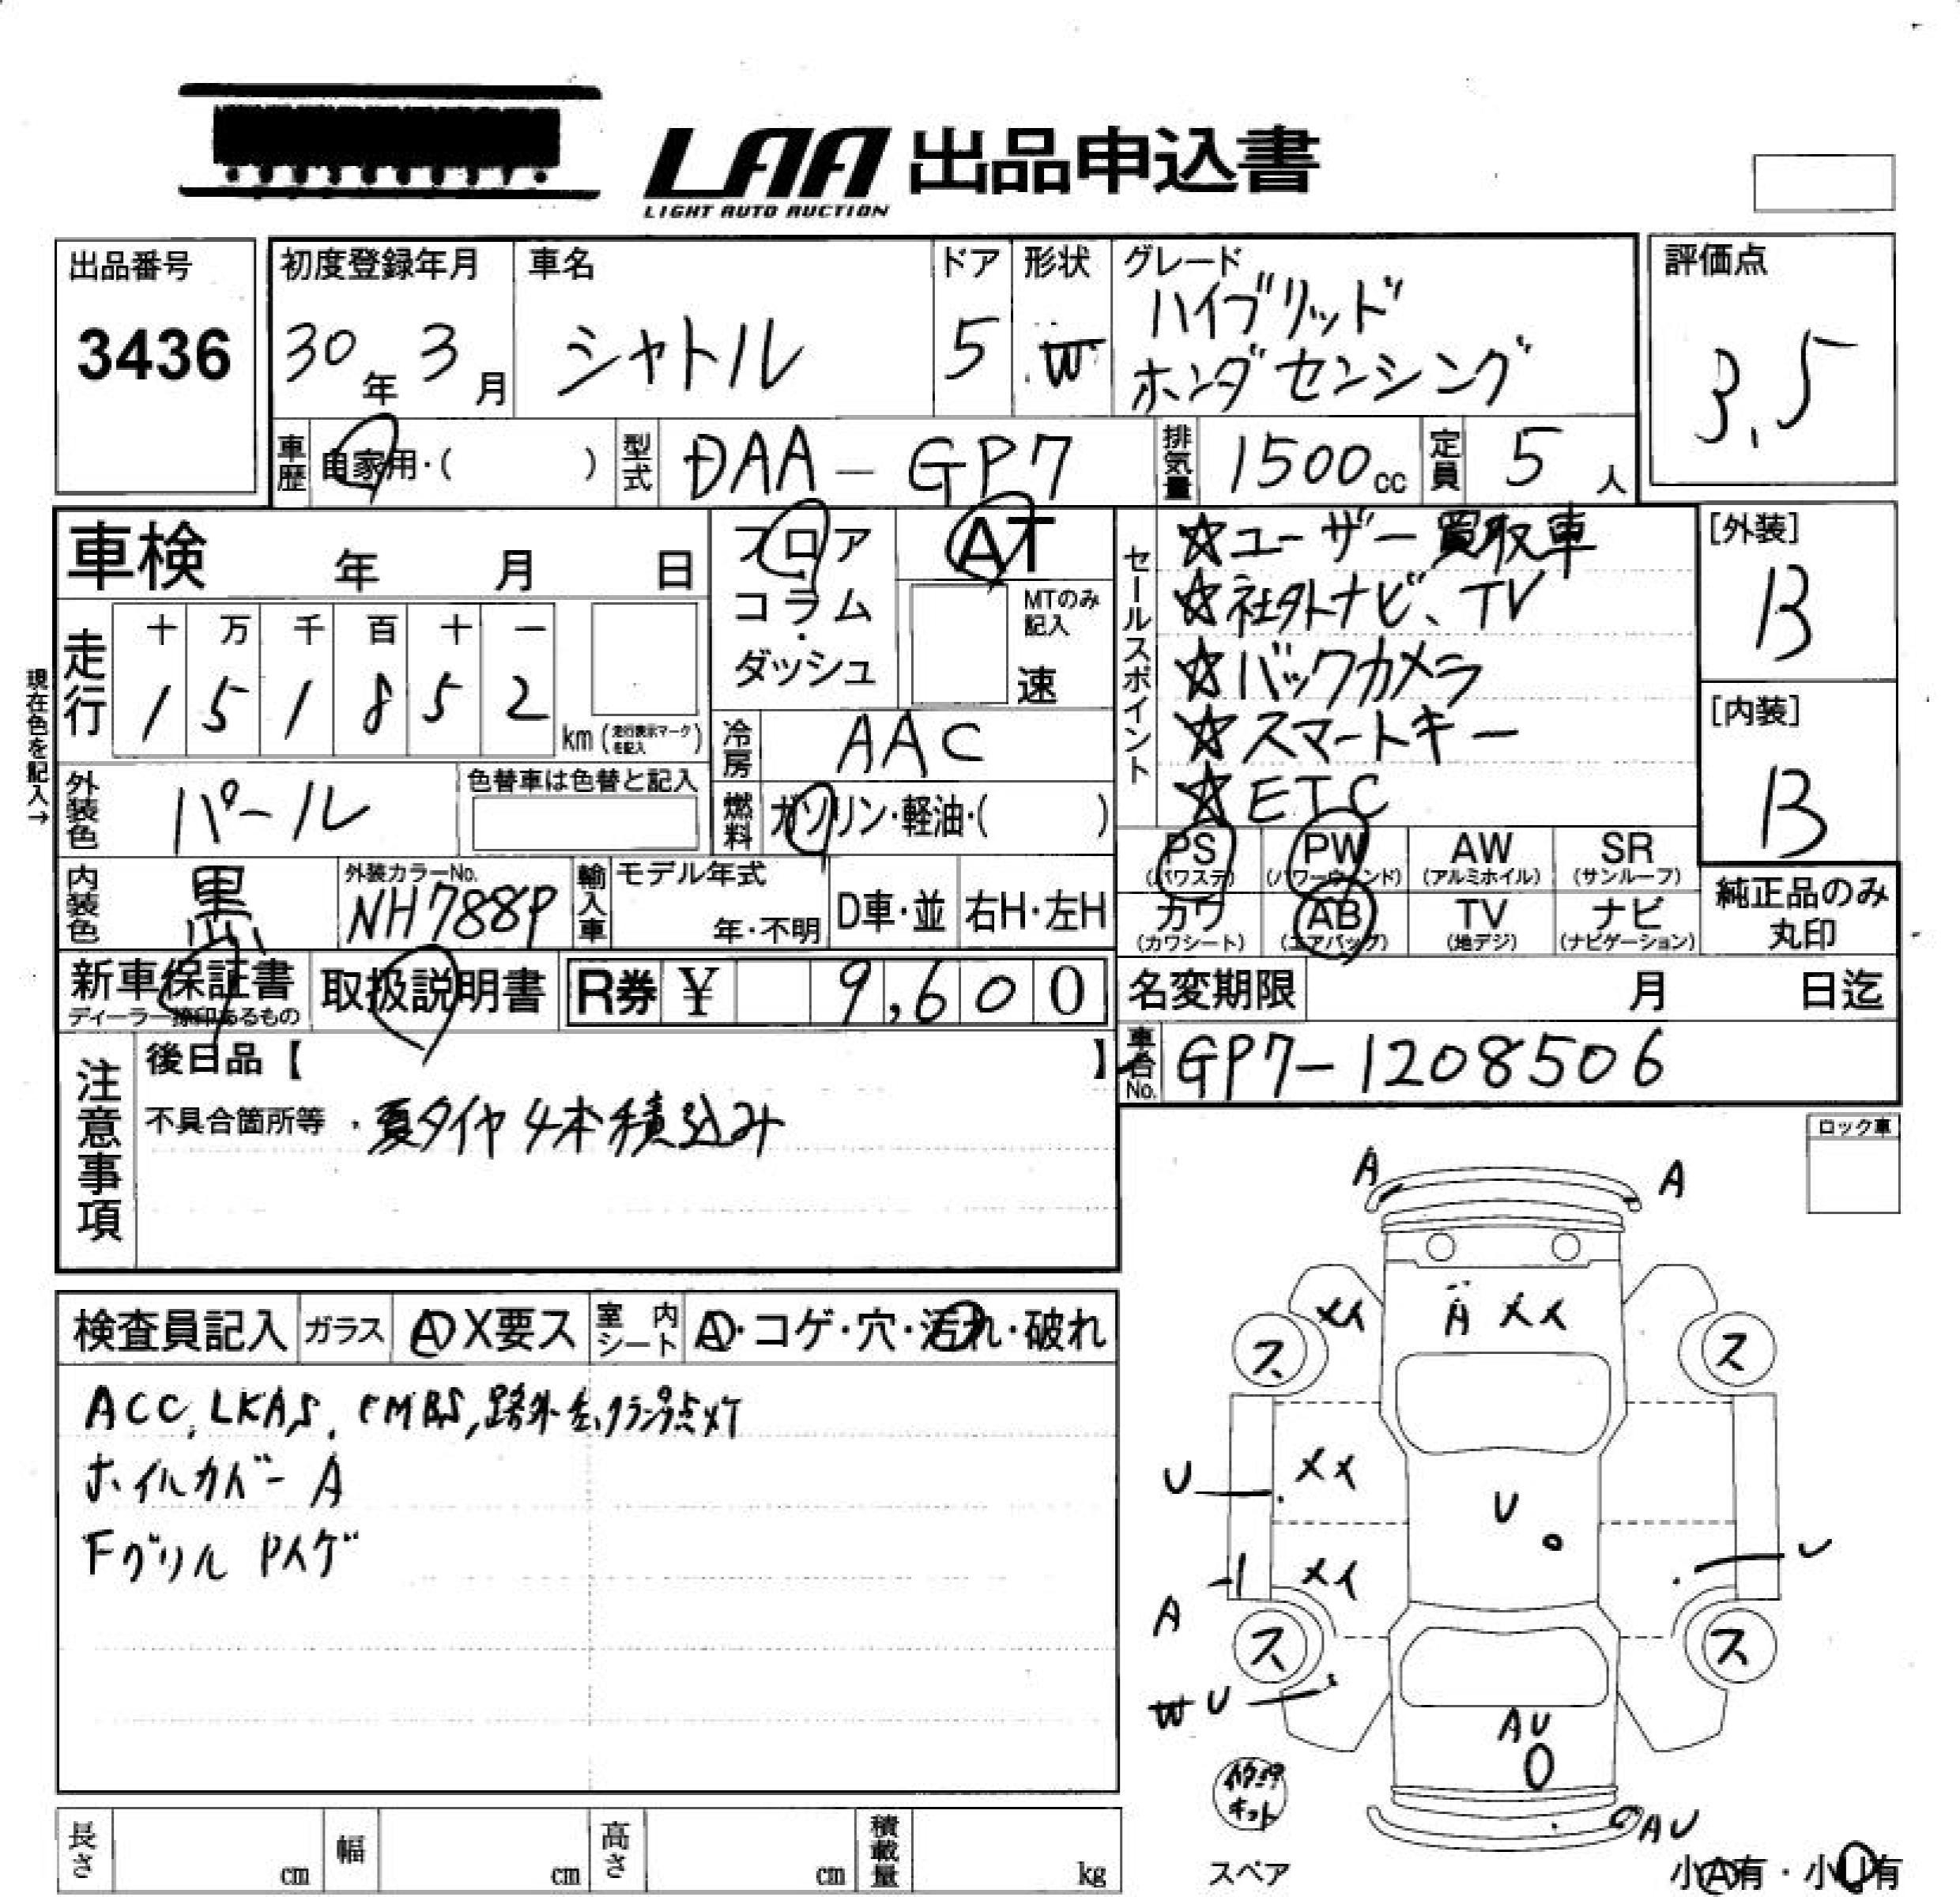 LAA 出品申込書
LIGHT AUTO AUCTION
出品番号
3436
初度登録年月
30年 3月
車名
シャトル
ドア
5
形状
W
グレード
ハイブリッド
ホンダセンシング
評価点
3.5
車歴 自家用・( )
型式 DAA-GP7
排気量 1500cc
定員 5人
車検 年 月 日
フロア
コラム
ダッシュ
AT
MTのみ
記入
速
走行
十 万 千 百 十 一
1 5 1 8 5 2
km (走行表示マークを記入)
現在色を記入→
冷房 AAC
外装色 パール
色替車は色替と記入
燃料 ガソリン・軽油・( )
内装色 黒
外装カラーNo.
NH788P
輸入車 モデル年式
年・不明
D車・並
右H・左H
セールスポイント
☆ユーザー買取車
☆社外ナビ、TV
☆バックカメラ
☆スマートキー
☆ETC
[外装]
B
[内装]
B
PS
(パワステ)
PW
(パワーウィンド)
AW
(アルミホイル)
SR
(サンルーフ)
カワ
(カワシート)
AB
(エアバッグ)
TV
(地デジ)
ナビ
(ナビゲーション)
純正品のみ
丸印
新車保証書
ディーラー捺印あるもの
取扱説明書
R券 ¥ 9,600
名変期限 月 日迄
車台No. GP7-1208506
注意事項
後日品【 】
不具合箇所等 ・夏タイヤ4本積込み
ロック車
検査員記入
ガラス
A X要ス
室内シート
A・コゲ・穴・汚れ・破れ
ACC, LKAS,
ホイルカバー A
Fグリル
A
A
メイ
A メイ
ス
ス
U
メメ
U
メイ
U
A
ス
ス
W U
AU
AU
キット
スペア
小A有・小U有
長さ cm
幅 cm
高さ cm
積載量 kg